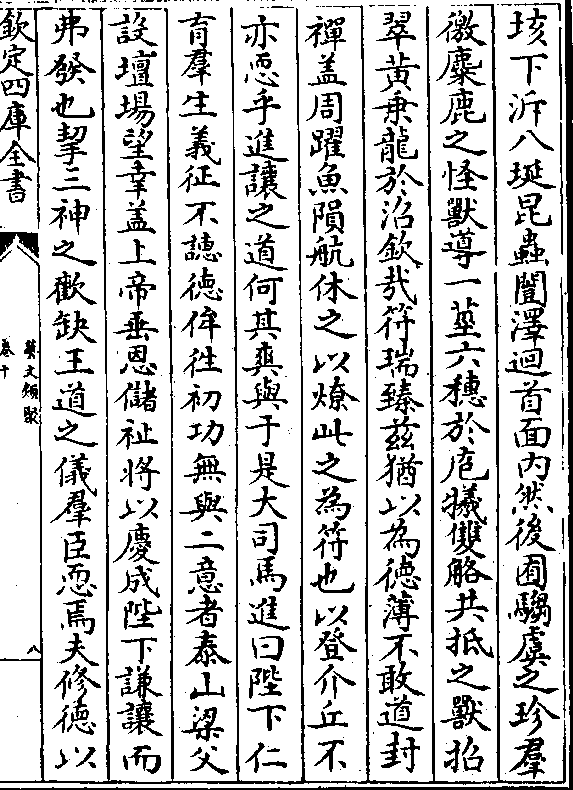 垓下泝八埏昆蟲闓澤迴首面内然後囿騶虞之珍羣
徼麋鹿之怪獸導一莖六穗於庖犧雙觡共抵之獸招
翠黃乗龍於沼欽哉符瑞臻兹猶以為徳薄不敢道封
禪盖周躍魚隕航休之以燎此之為符也以登介丘不
亦恧乎進讓之道何其爽與于是大司馬進曰陛下仁
育羣生義征不譓徳侔徃初功無與二意者泰山梁父
設壇場望幸盖上帝垂恩儲祉將以慶成陛下謙讓而
弗發也挈三神之歡缺王道之儀羣臣恧焉夫修徳以
欽定四庫全書
藝文類聚
卷十
八